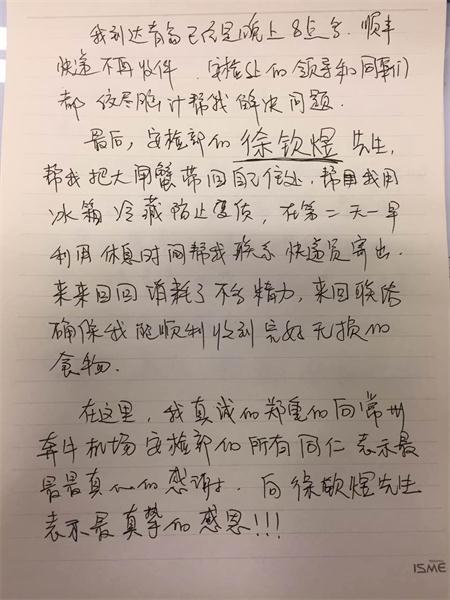 我到达青岛已经是晚上8点多.顺丰
快递不再收件.安检处的领导和同事们
都绞尽脑汁帮我解决问题.
最后,安检部的徐钦煜先生,
帮我把大闸蟹带回自己住处,帮我用
冰箱冷藏防止变质,在第二天一早
利用休息时间帮我联系快递员寄出.
来来回回消耗了不少精力,来回联络
确保我能顺利收到完好无损的
食物.
在这里,我真诚的郑重的向常州
奔牛机场安检部的所有同仁表示最
最最真心的感谢.向徐钦煜先生
表示最真挚的感恩!!!
ISME